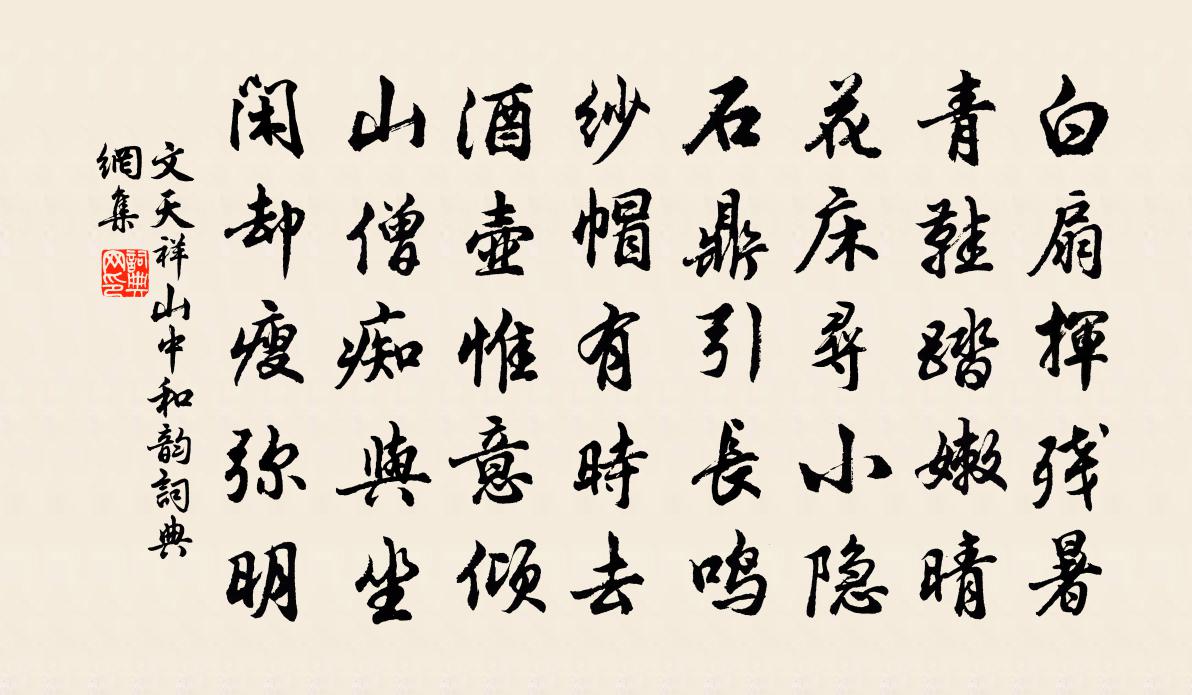 白扇揮残暑
青鞋踏嫩晴
花床尋小隐
石鼎引長鸣
紗帽有時去
酒壺惟意倾
山僧痴與坐
閑却瘦弥明
文天祥山中和韵詞典
網集
詞典
网印